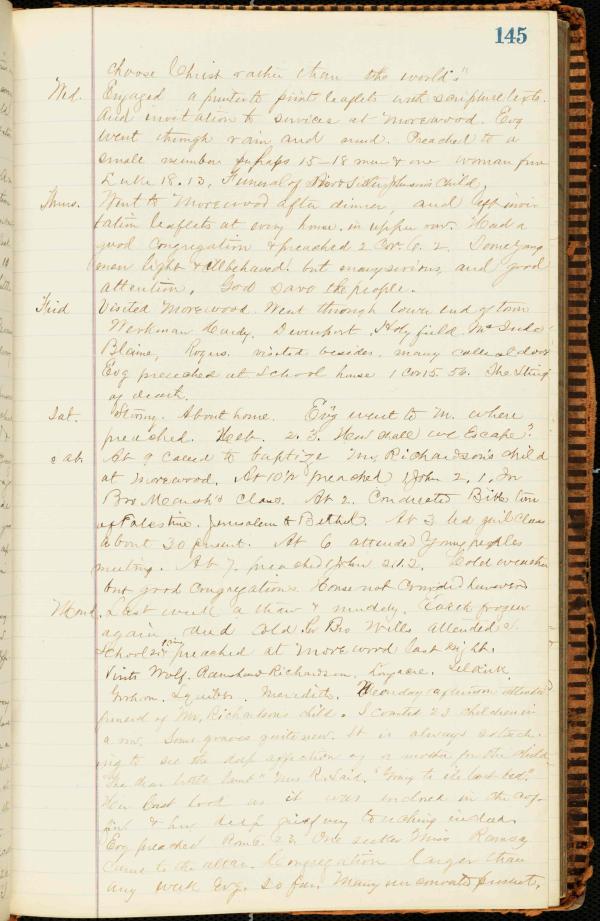 145
choose Christ rather than the world's"
Wed. Engaged a printer to print leaflets with scripture texts.
and invitation to services at Morewood. Evg
went through rain and mud. Preached to a
small number perhaps 15-18 men & one woman from
Luke 18.13. Funeral of Child.
Thurs. Went to Morewood after dinner, and left invi-
tation leaflets at every house in upper row. Had a
good congregation & preached 2 Cor. 6. 2. Some young
men light & illbehaved. but many serious, and good
attention. God save the people.
Frid Visited Morewood. Went through lower end of town
Workman Hardy. Devenport. Holyfield.
Blaine, Rogers. visited besides. many called at door
Evg preached at School house 1 Cor 15. 56. The Sting
of death.
Sat. Stormy. About home. Evg went to M. where
preached. Heb. 2. 3. How shall we Escape?
Sab. At 9 called to baptize Mrs Richardson's child
at Morewood. At 10½ preached 1 John 2. 1. In
Bro Class. At 2. Conducted Bible
of Palestine. Jerusalem to Bethel. At 3 led girl Class
about 30 present. At 6 attended Young peoples
meeting. At 7. preached 1 John 2.1.2. Cold weather
but good congregations. House not Crowded however
Mond. Last week a thaw & muddy. Roads frozen
again and cold. Bro Wills attended S.
School & preached at Morewood last night.
Visits Wolf. Richardson.
Grohom. Squibbs. Meredith. afternoon attended
funeral of Mrs Richardsons child. I counted 23 children in
a row. Some graves quite new. It is always
to see the deep affection of a mother for the child
"The dear little lamb" Mrs R. said. "Going to its last bed."
Her last look as it was inclosed in the cof-
fin & her deep grief very touching indeed.
Evg preached Rom 6. 23. One seeker Miss Ramsay
came to the altar. Congregation larger than
any week Evg. so far. Many unconverted present.